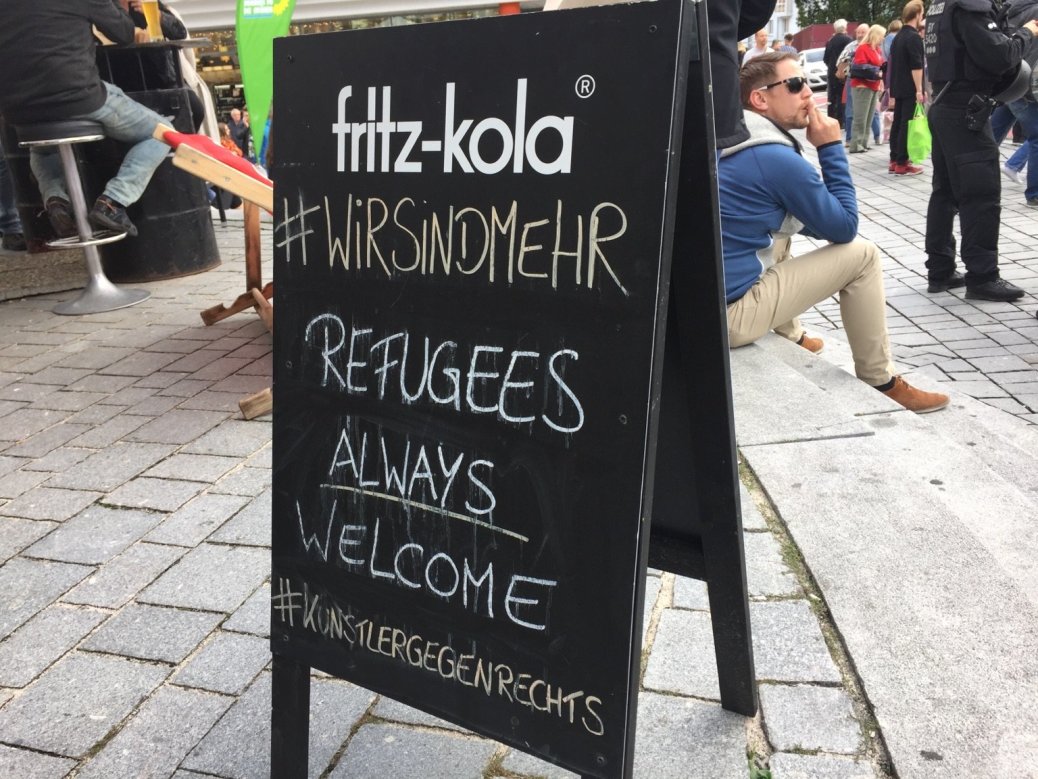 fritz-kola®
#WiRSiNDMEHR
REFUGEES
ALWAYS
WELCOME
#KÜNSTLERGEGENRECHTS